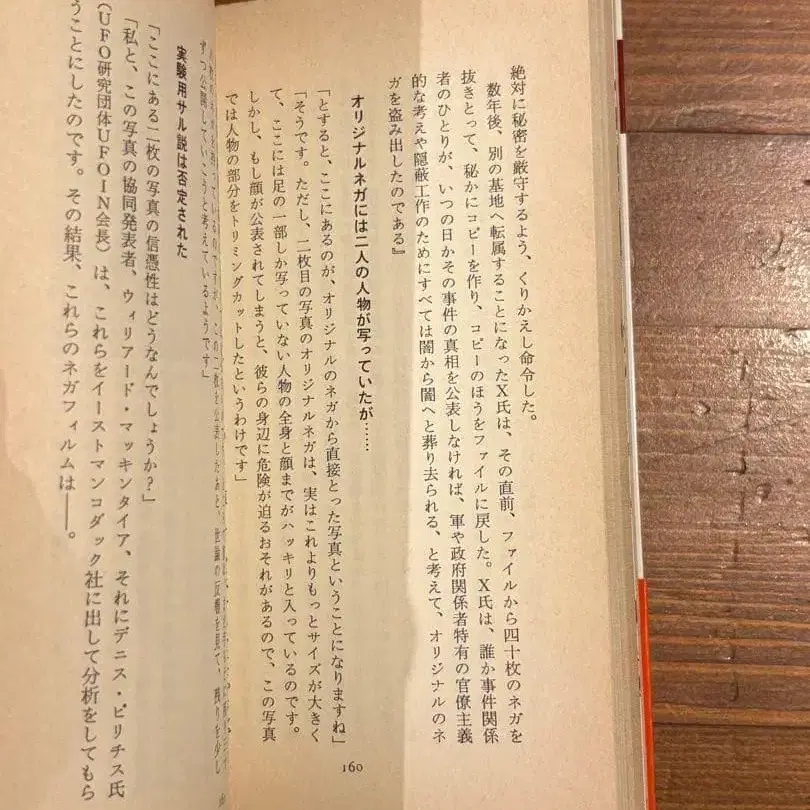 絶対に秘密を厳守するよう、くりかえし命令した。
数年後、別の基地へ転属することになったX氏は、その直前、ファイルから四十枚のネガを
抜きとって、秘かにコピーを作り、コピーのほうをファイルに戻した。X氏は、誰か事件関係
者のひとりが、いつの日かその事件の真相を公表しなければ、軍や政府関係者特有の官僚主義
的な考えや隠蔽工作のためにすべては闇から闇へと葬り去られる、と考えて、オリジナルのネ
ガを盗み出したのである』
オリジナルネガには二人の人物が写っていたが……
「とすると、ここにあるのが、オリジナルのネガから直接とった写真ということになりますね」
「そうです。ただし、二枚目の写真のオリジナルネガは、実はこれよりもっとサイズが大きく
て、ここには足の一部しか写っていない人物の全身と顔までがハッキリと入っているのです。
しかし、もし顔が公表されてしまうと、彼らの身辺に危険が迫るおそれがあるので、この写真
では人物の部分をトリミングカットしたというわけです」
160
この二枚を公表したあと、世論の反響を見て、残りを少し
ずつ公開していこうと考えているようです」
実験用サル説は否定された
「ここにある二枚の写真の信憑性はどうなんでしょうか？」
「私と、この写真の協同発表者、ウィリアード・マッキンタイア、それにデニス・ピリチス氏
（UFO研究団体UFOIN会長）は、これらをイーストマンコダック社に出して分析をしてもら
うことにしたのです。その結果、これらのネガフィルムは――。